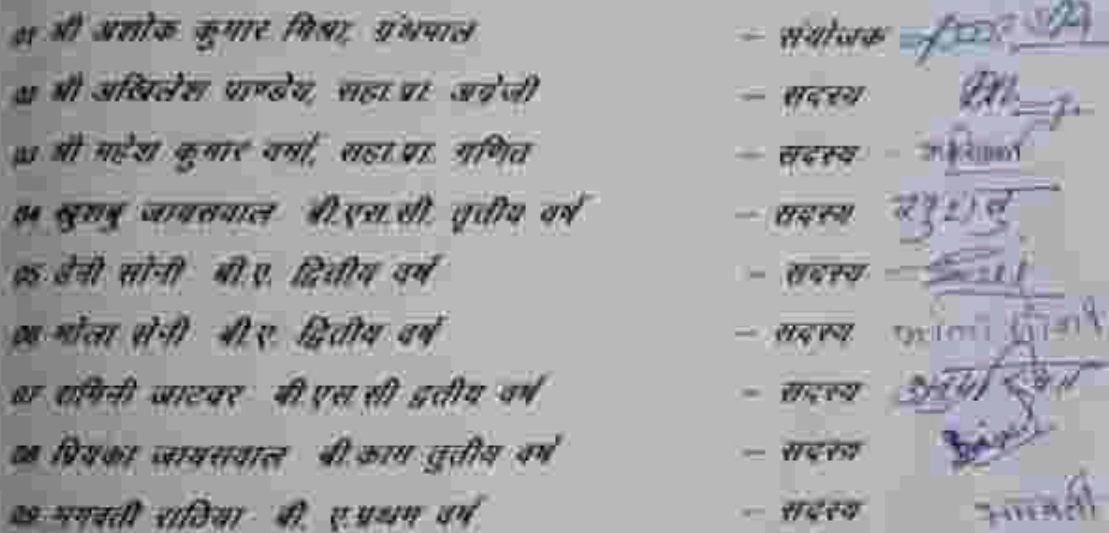 01 श्री अशोक कुमार मिश्रा, ग्रंथपाल – संयोजक
02 श्री अखिलेश पाण्डेय, सहा.प्रा. अंग्रेजी – सदस्य
03 श्री महेश कुमार वर्मा, सहा.प्रा. गणित – सदस्य
04 खुशबु जायसवाल बी.एस.सी. तृतीय वर्ष – सदस्य खुशबु
05 डेनी सोनी बी.ए. द्वितीय वर्ष – सदस्य
06 सेनी बी.ए. द्वितीय वर्ष – सदस्य
07 जाटवर बी.एस सी वर्ष – सदस्य
08 प्रियंका जायसवाल बी.काम तृतीय वर्ष – सदस्य
09 भगवती राठिया बी. ए.प्रथम वर्ष – सदस्य भगवती